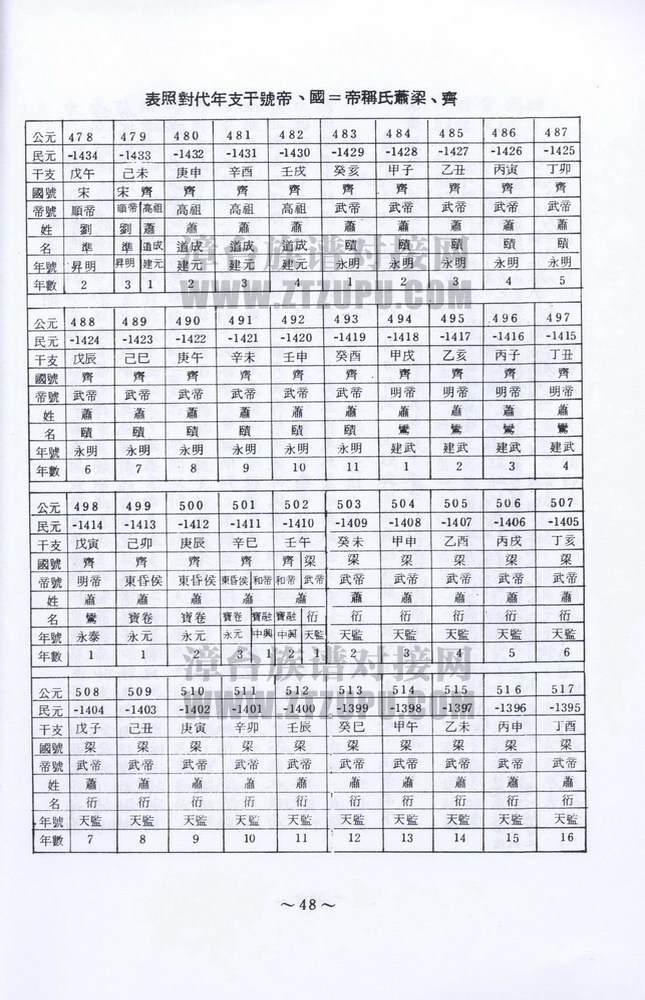 齊、梁蕭氏稱帝=國、帝號干支年代對照表
公元 478 479 480 481 482 483 484 485 486 487
民元 -1434 -1433 -1432 -1431 -1430 -1429 -1428 -1427 -1426 -1425
干支 戊午 己未 庚申 辛酉 壬戌 癸亥 甲子 乙丑 丙寅 丁卯
國號 宋 宋 齊 齊 齊 齊 齊 齊 齊 齊 齊
帝號 順帝 順帝 高祖 高祖 高祖 高祖 武帝 武帝 武帝 武帝 武帝
姓 劉 劉 蕭 蕭 蕭 蕭 蕭 蕭 蕭 蕭 蕭
名 準 準 道成 道成 道成 道成 賾 賾 賾 賾 賾
年號 昇明 昇明 建元 建元 建元 建元 永明 永明 永明 永明 永明
年數 2 3 1 2 3 4 1 2 3 4 5
公元 488 489 490 491 492 493 494 495 496 497
民元 -1424 -1423 -1422 -1421 -1420 -1419 -1418 -1417 -1416 -1415
干支 戊辰 己巳 庚午 辛未 壬申 癸酉 甲戌 乙亥 丙子 丁丑
國號 齊 齊 齊 齊 齊 齊 齊 齊 齊 齊
帝號 武帝 武帝 武帝 武帝 武帝 武帝 明帝 明帝 明帝 明帝
姓 蕭 蕭 蕭 蕭 蕭 蕭 蕭 蕭 蕭 蕭
名 賾 賾 賾 賾 賾 賾 鸞 鸞 鸞 鸞
年號 永明 永明 永明 永明 永明 永明 建武 建武 建武 建武
年數 6 7 8 9 10 11 1 2 3 4
公元 498 499 500 501 502 503 504 505 506 507
民元 -1414 -1413 -1412 -1411 -1410 -1409 -1408 -1407 -1406 -1405
干支 戊寅 己卯 庚辰 辛巳 壬午 癸未 甲申 乙酉 丙戌 丁亥
國號 齊 齊 齊 齊 齊 梁 梁 梁 梁 梁 梁
帝號 明帝 東昏侯 東昏侯 東昏侯 和帝 和帝 武帝 武帝 武帝 武帝 武帝 武帝
姓 蕭 蕭 蕭 蕭 蕭 蕭 蕭 蕭 蕭 蕭
名 鸞 寶卷 寶卷 寶卷 寶融 寶融 衍 衍 衍 衍 衍 衍
年號 永泰 永元 永元 永元 中興 中興 天監 天監 天監 天監 天監 天監
年數 1 1 2 3 1 2 1 2 3 4 5 6
公元 508 509 510 511 512 513 514 515 516 517
民元 -1404 -1403 -1402 -1401 -1400 -1399 -1398 -1397 -1396 -1395
干支 戊子 己丑 庚寅 辛卯 壬辰 癸巳 甲午 乙未 丙申 丁酉
國號 梁 梁 梁 梁 梁 梁 梁 梁 梁 梁
帝號 武帝 武帝 武帝 武帝 武帝 武帝 武帝 武帝 武帝 武帝
姓 蕭 蕭 蕭 蕭 蕭 蕭 蕭 蕭 蕭 蕭
名 衍 衍 衍 衍 衍 衍 衍 衍 衍 衍
年號 天監 天監 天監 天監 天監 天監 天監 天監 天監 天監
年數 7 8 9 10 11 12 13 14 15 16
~48~
漳台族谱对接网
WWW.ZTZUPU.COM
漳台族谱对接网
WWW.ZTZUPU.COM